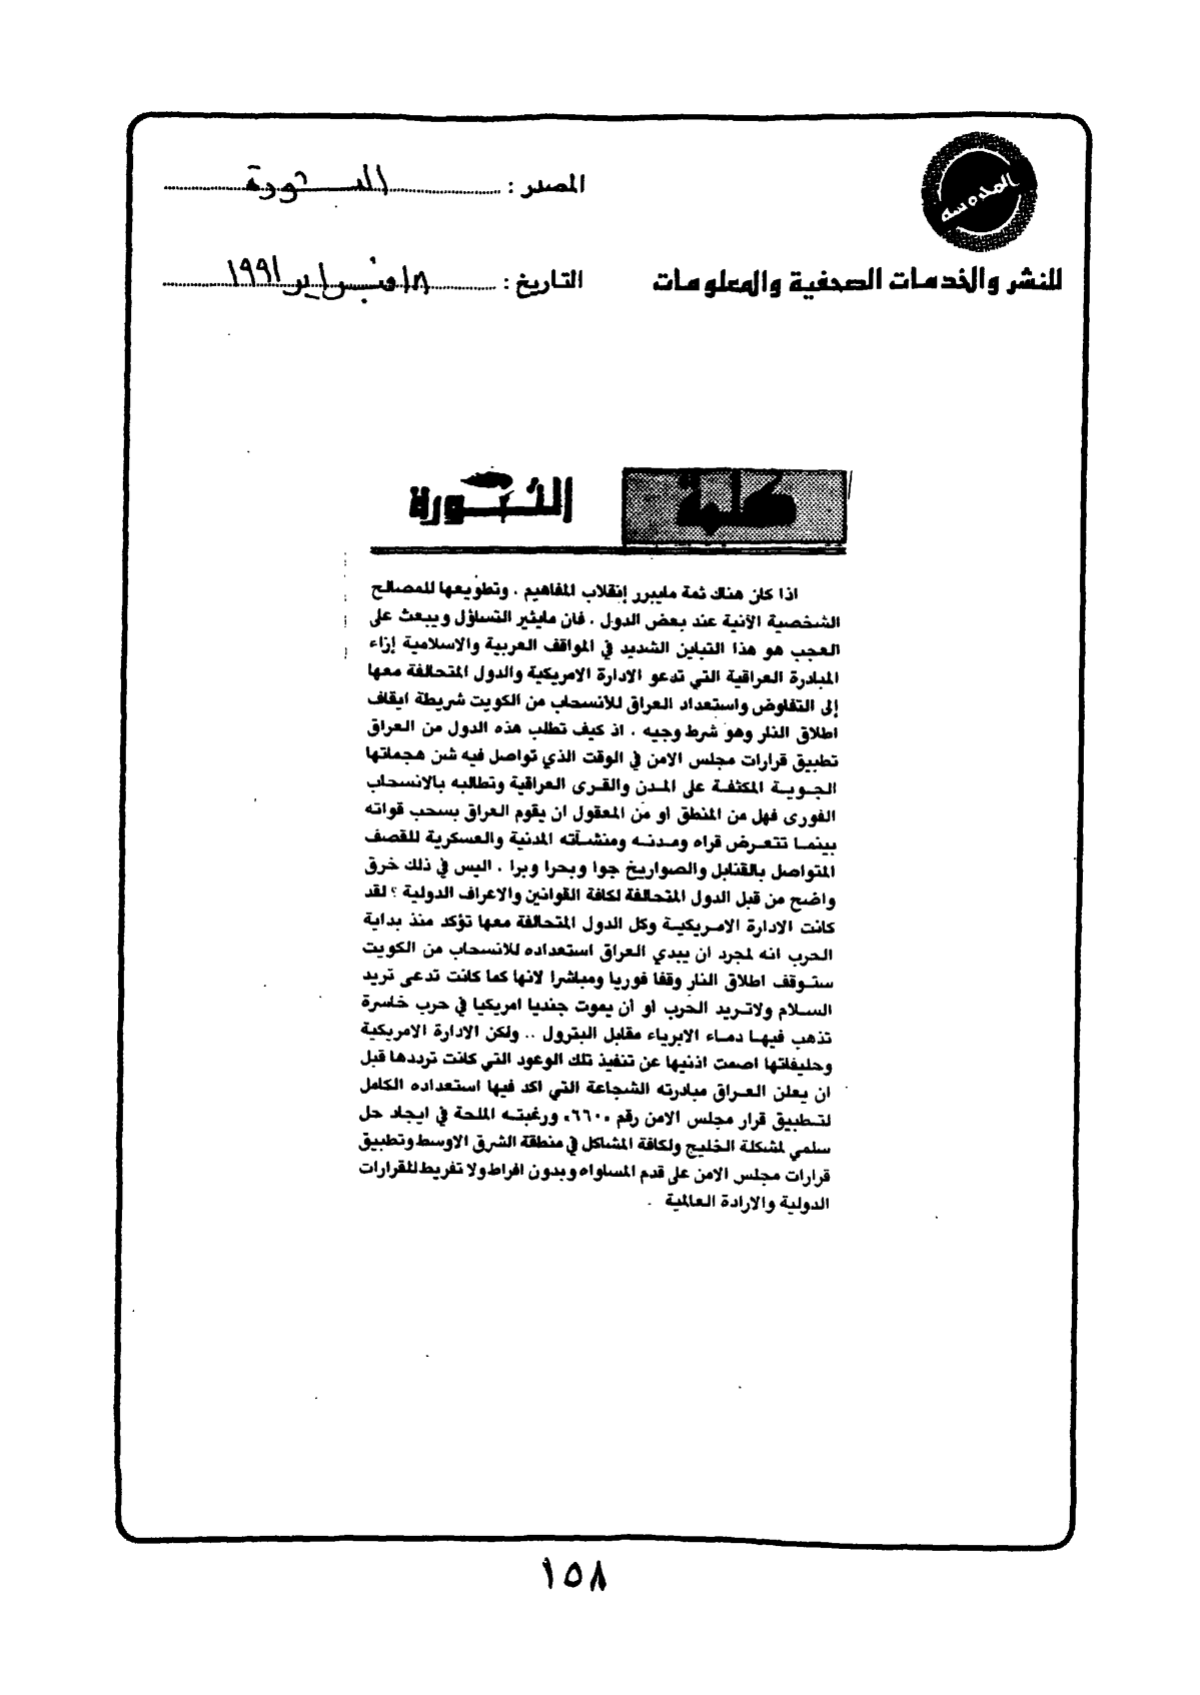 المدوسة
للنشر والخدمات الصحفية والمعلومات
المصدر : الثورة
التاريخ : ١٨ فبراير ١٩٩١
كلمة الثورة
اذا كان هناك ثمة مايبرر إنقلاب المفاهيم . وتطويعها للمصالح
الشخصية الآنية عند بعض الدول . فان مايثير التساؤل ويبعث على
العجب هو هذا التباين الشديد في المواقف العربية والاسلامية إزاء
المبادرة العراقية التي تدعو الادارة الامريكية والدول المتحالفة معها
إلى التفاوض واستعداد العراق للأنسحاب من الكويت شريطة ايقاف
اطلاق النار وهو شرط وجيه . اذ كيف تطلب هذه الدول من العراق
تطبيق قرارات مجلس الامن في الوقت الذي تواصل فيه شن هجماتها
الجوية المكثفة على المدن والقرى العراقية وتطالبه بالانسحاب
الفورى فهل من المنطق أو من المعقول ان يقوم العراق بسحب قواته
بينما تتعرض قراه ومدنه ومنشآته المدنية والعسكرية للقصف
المتواصل بالقنابل والصواريخ جوا وبحرا وبرا . اليس في ذلك خرق
واضح من قبل الدول المتحالفة لكافة القوانين والاعراف الدولية ؟ لقد
كانت الادارة الامريكية وكل الدول المتحالفة معها تؤكد منذ بداية
الحرب انه لمجرد ان يبدي العراق استعداده للانسحاب من الكويت
ستوقف اطلاق النار وقفا فوريا ومباشرا لانها كما كانت تدعى تريد
السلام ولاتريد الحرب أو أن يموت جنديا امريكيا في حرب خاسرة
تذهب فيها دماء الابرياء مقابل البترول .. ولكن الادارة الامريكية
وحليفاتها اصمت اذنيها عن تنفيذ تلك الوعود التي كانت ترددها قبل
ان يعلن العراق مبادرته الشجاعة التي اكد فيها استعداده الكامل
لتطبيق قرار مجلس الامن رقم «٦٦٠» ورغبته الملحة في ايجاد حل
سلمي لمشكلة الخليج ولكافة المشاكل في منطقة الشرق الاوسط وتطبيق
قرارات مجلس الامن على قدم المساواه وبدون افراط ولا تفريط للقرارات
الدولية والارادة العالمية .
١٥٨